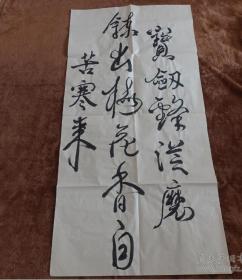 寶劍鋒從磨
錬出梅花香自
苦寒来